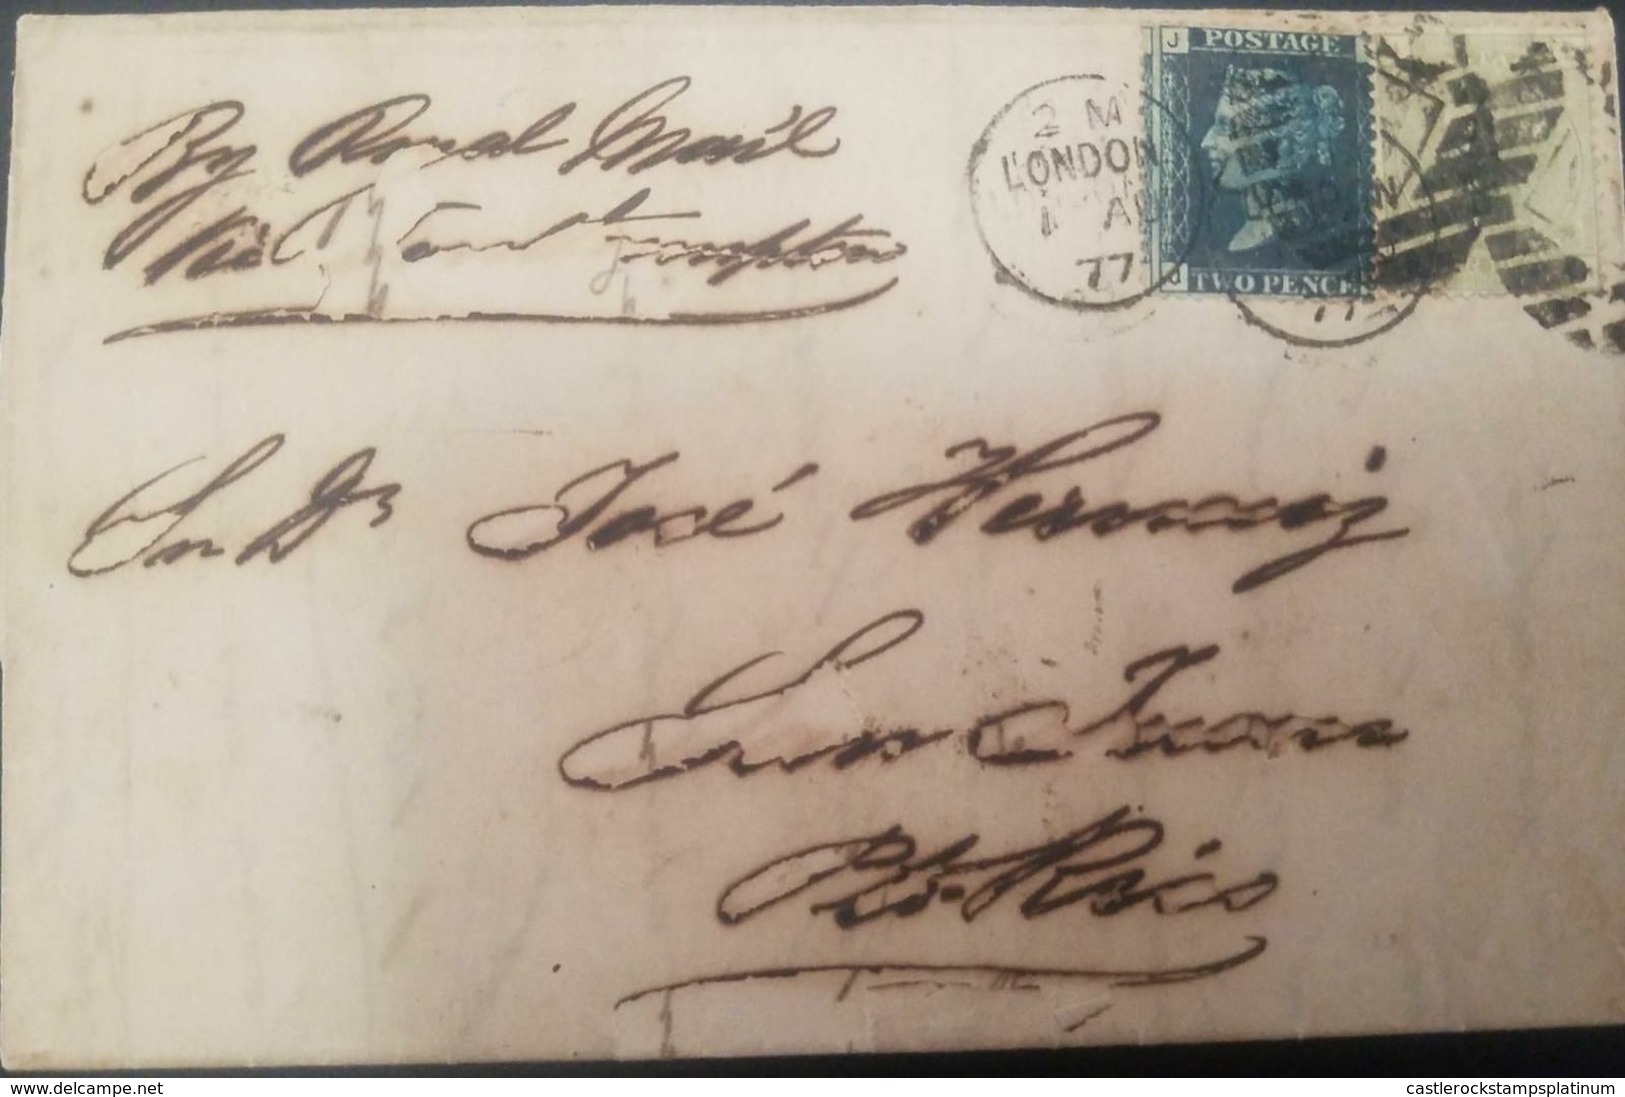 By Royal Mail
via Southampton
2 M
LONDON
1 AU
77
J
POSTAGE
J
TWO PENCE
77
Sr Dn José
San Juan
Pto Rico
www.delcampe.net
castlerockstampsplatinum